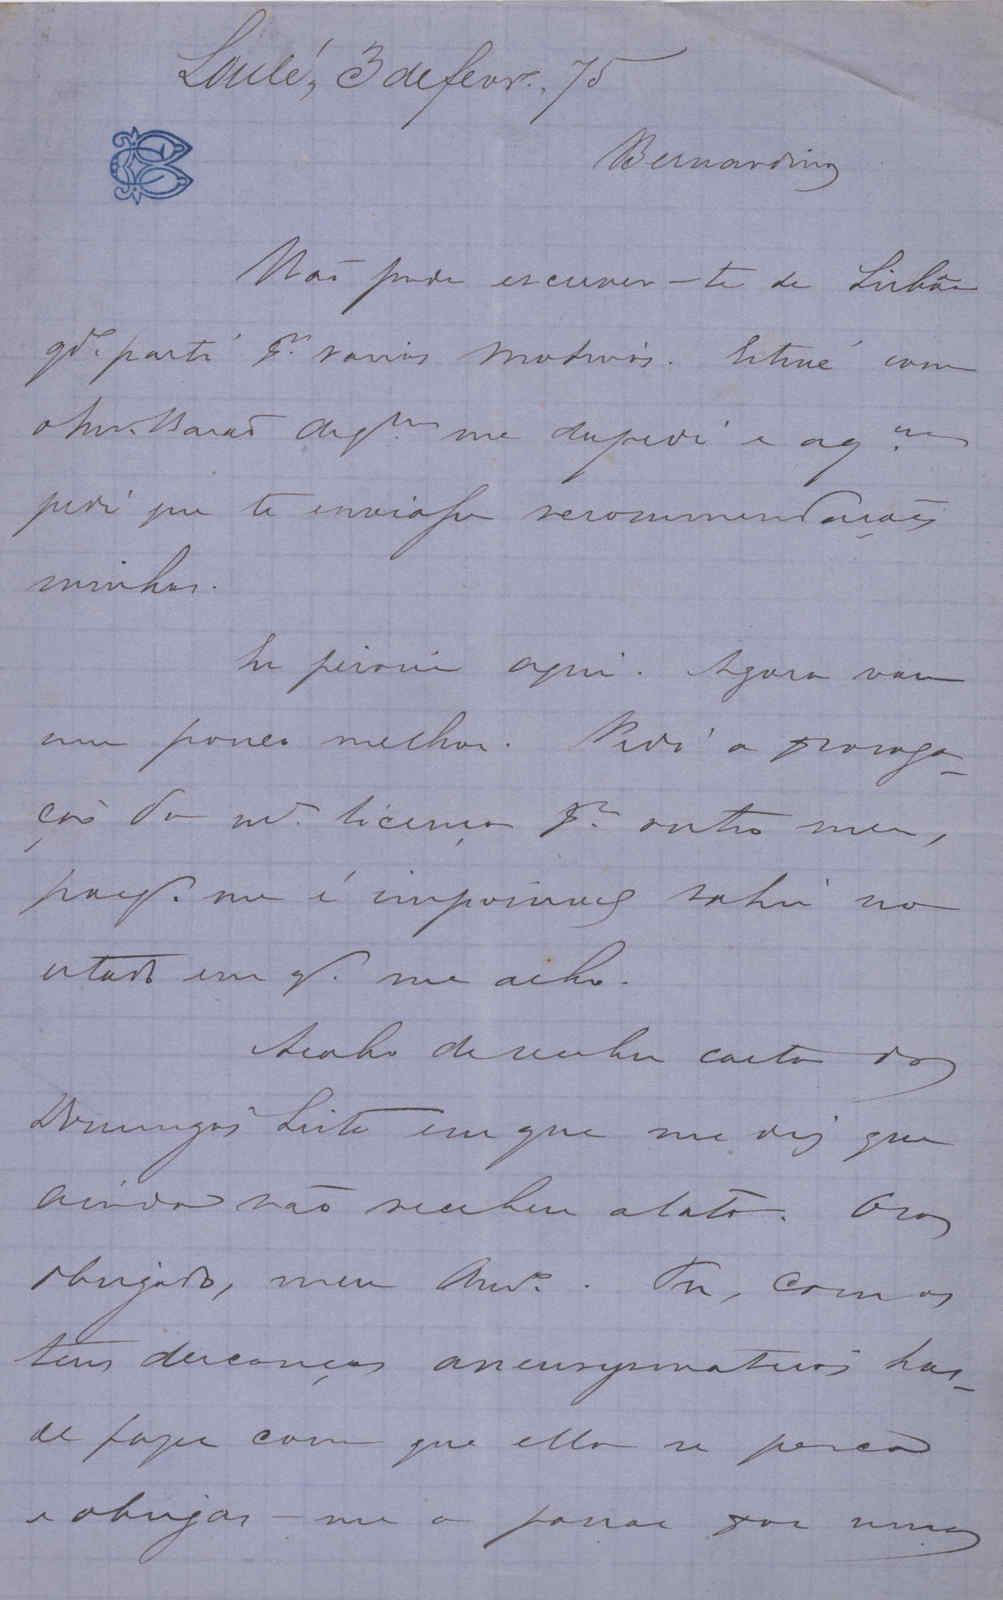 Loulé, 3 de fevr.º 75
Bernardino
Não pude escrever-te de Lisbôa
qdº parti pª varios motivos. Estive com
o Barão de qm me despedi e a qm
pedi que te enviasse recommendações
minhas.
peiorei aqui. Agora vou
um pouco melhor. Pedi a proroga-
ção da mª licença pª outro mez,
porq. me é impossivel sahir no
estado em q. me acho.
Acabo de receber carta do
Domingos Leite em que me diz que
ainda não recebeu a lata. Ora
obrigado, meu Amº. Tu, com os
teus descanços aneurysmaticos has-
de fazer com que ella se perca
e obrigas-me a passar por uma